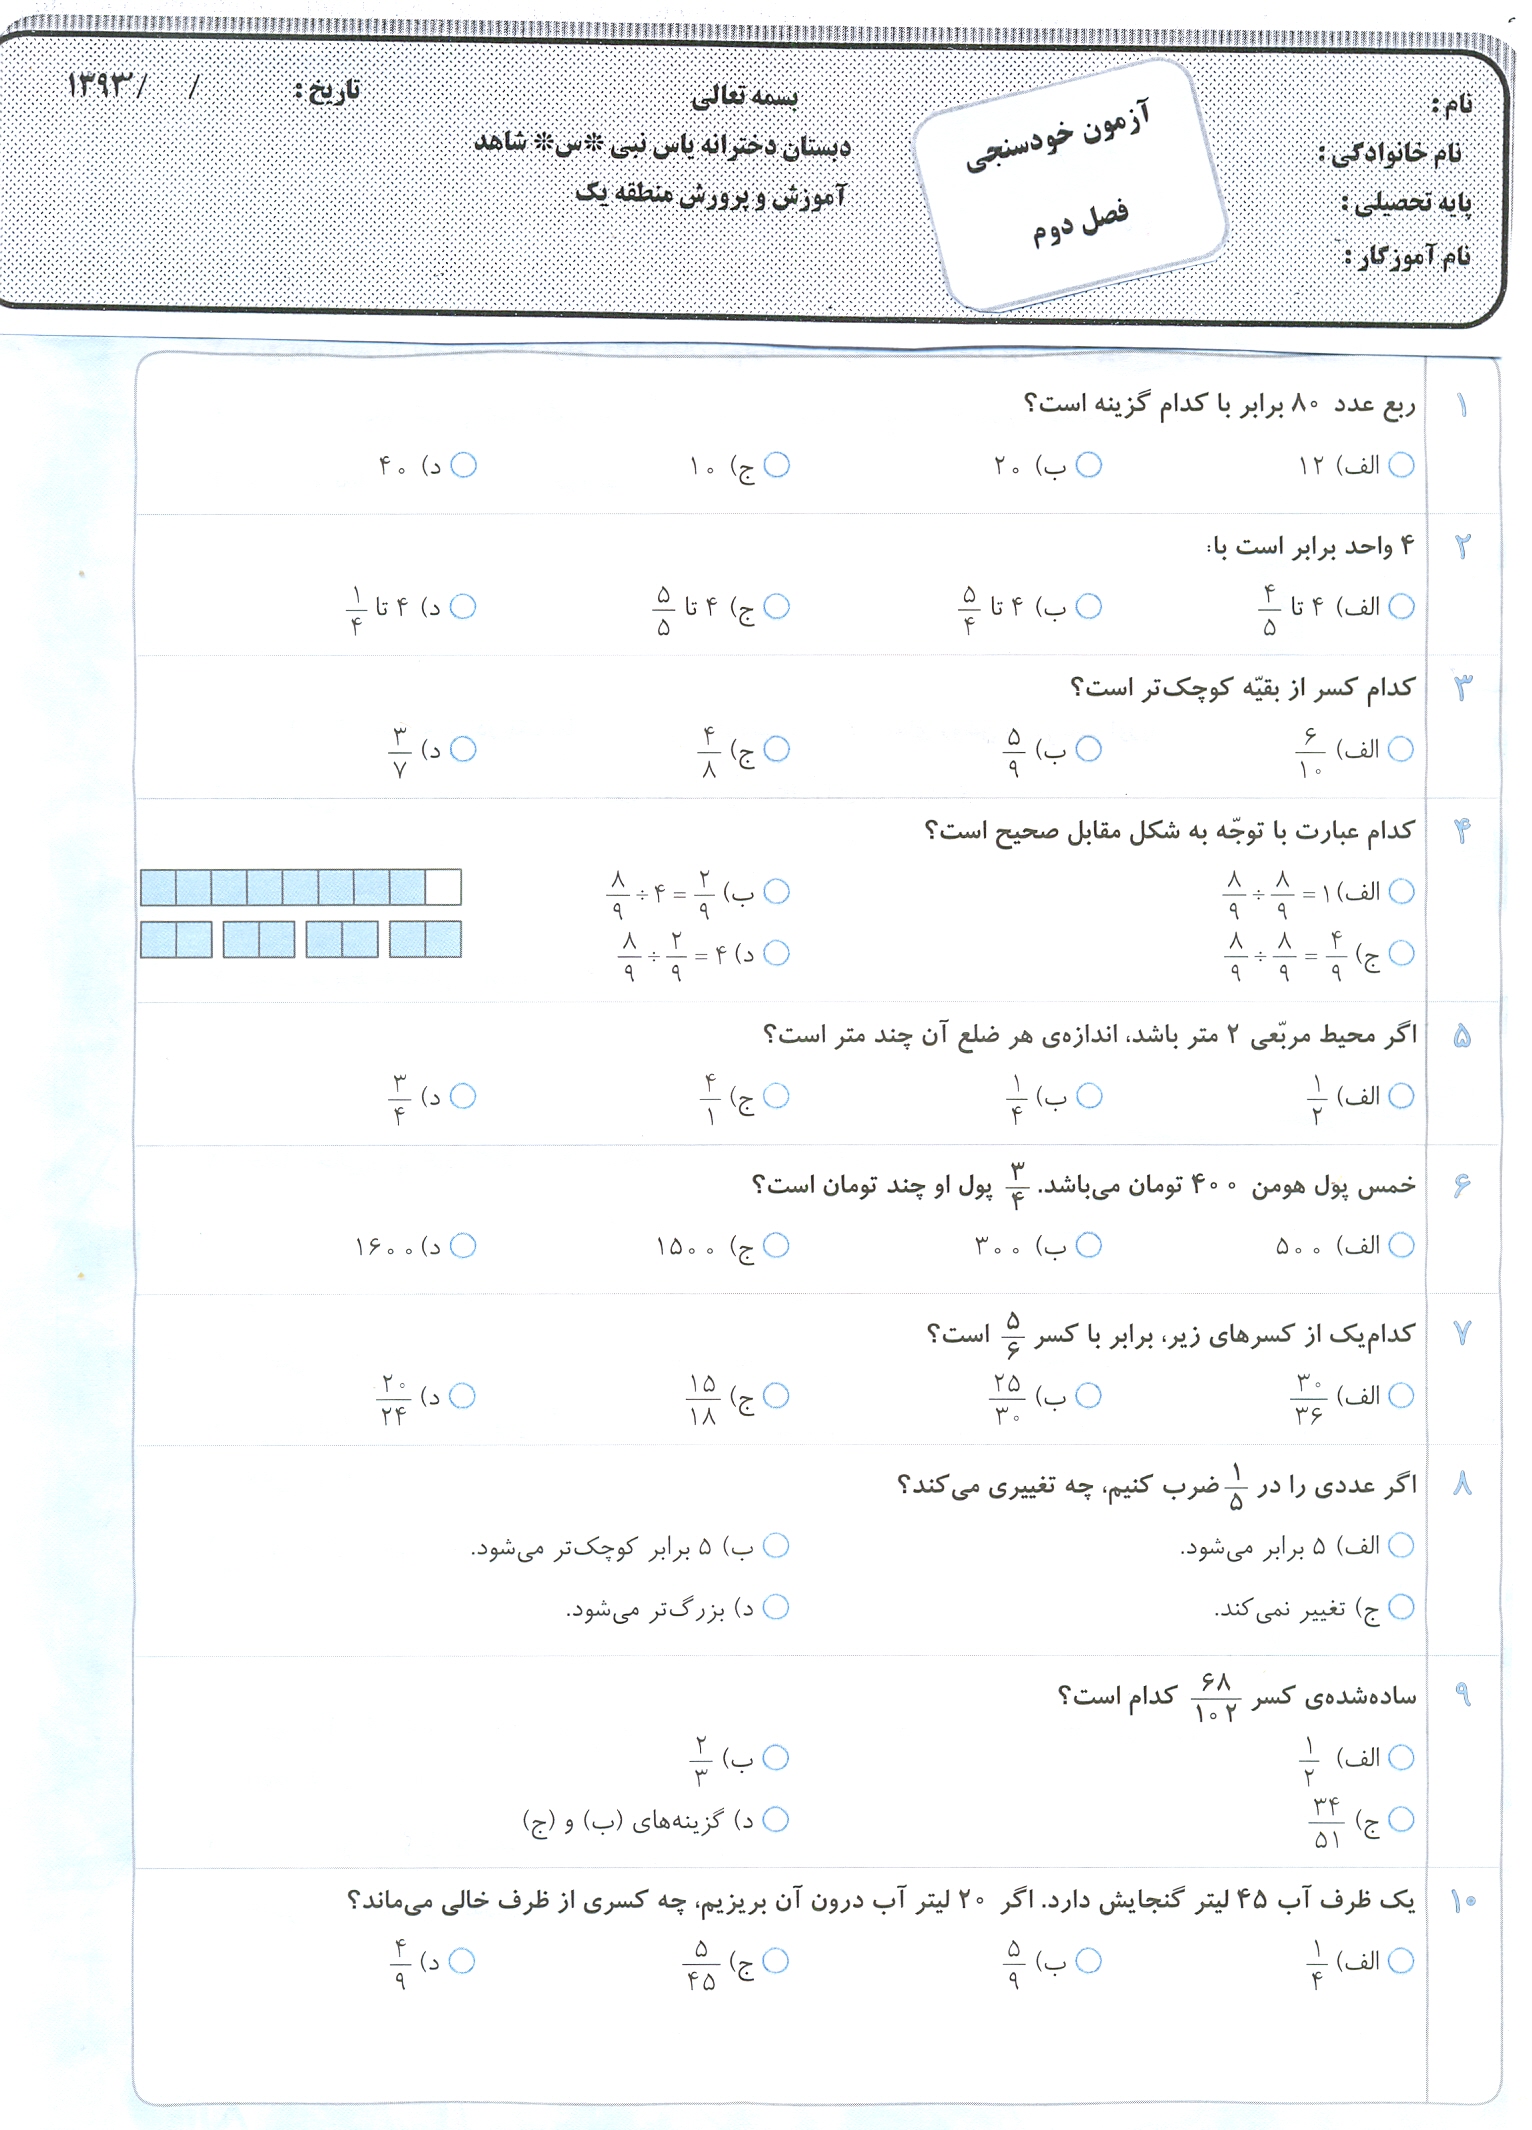 نام :
نام خانوادگی :
پایه تحصیلی :
نام آموزگار :
آزمون خودسنجی
فصل دوم
بسمه تعالی
دبستان دخترانه یاس نبی *س* شاهد
آموزش و پرورش منطقه یک
تاریخ : / /۱۳۹۳
۱ ربع عدد ۸۰ برابر با کدام گزینه است؟
الف) ۱۲ ب) ۲۰ ج) ۱۰ د) ۴۰
۲ ۴ واحد برابر است با:
الف) ۴ تا ۴/۵ ب) ۴ تا ۵/۴ ج) ۴ تا ۵/۵ د) ۴ تا ۱/۴
۳ کدام کسر از بقیّه کوچک‌تر است؟
الف) ۶/۱۰ ب) ۵/۹ ج) ۴/۸ د) ۳/۷
۴ کدام عبارت با توجّه به شکل مقابل صحیح است؟
الف) ۸/۹ ÷ ۸/۹ = ۱ ب) ۸/۹ ÷ ۴ = ۲/۹
ج) ۸/۹ ÷ ۸/۹ = ۴/۹ د) ۸/۹ ÷ ۲/۹ = ۴
۵ اگر محیط مربّعی ۲ متر باشد، اندازه‌ی هر ضلع آن چند متر است؟
الف) ۱/۲ ب) ۱/۴ ج) ۴/۱ د) ۳/۴
۶ خمس پول هومن ۴۰۰ تومان می‌باشد. ۳/۴ پول او چند تومان است؟
الف) ۵۰۰ ب) ۳۰۰ ج) ۱۵۰۰ د) ۱۶۰۰
۷ کدام‌یک از کسرهای زیر، برابر با کسر ۵/۶ است؟
الف) ۳۰/۳۶ ب) ۲۵/۳۰ ج) ۱۵/۱۸ د) ۲۰/۲۴
۸ اگر عددی را در ۱/۵ ضرب کنیم، چه تغییری می‌کند؟
الف) ۵ برابر می‌شود. ب) ۵ برابر کوچک‌تر می‌شود.
ج) تغییر نمی‌کند. د) بزرگ‌تر می‌شود.
۹ ساده‌شده‌ی کسر ۶۸/۱۰۲ کدام است؟
الف) ۱/۲ ب) ۲/۳
ج) ۳۴/۵۱ د) گزینه‌های (ب) و (ج)
۱۰ یک ظرف آب ۴۵ لیتر گنجایش دارد. اگر ۲۰ لیتر آب درون آن بریزیم، چه کسری از ظرف خالی می‌ماند؟
الف) ۱/۴ ب) ۵/۹ ج) ۵/۴۵ د) ۴/۹